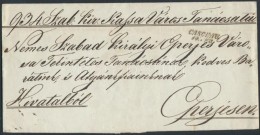 934 Szab. kir. Kassa Város Tanácsától
Nemes Szabad Királyi Eperjes Váro-
sa Tekintetes Tanácsának, kedves Ba-
rátinak és Atyánkfiainak
Hivatalból
Eperjesen